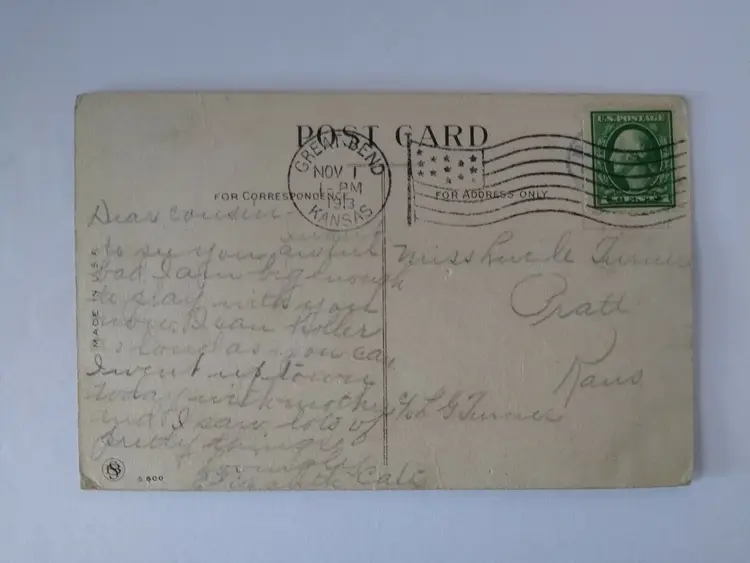 POST CARD
GREAT BEND
NOV 1
1- PM
1913
KANSAS
U.S. POSTAGE
FOR CORRESPONDENCE
FOR ADDRESS ONLY
MADE IN U.S.A.
Dear cousin-
to see you awful
bad. I am big enough
to stay with you
now. I can holler
as loud as you can
I went up town
today with mother
and I saw lots of
pretty things
Miss Lucile Turner
Pratt
Kans
c/o L G Turner
S 600